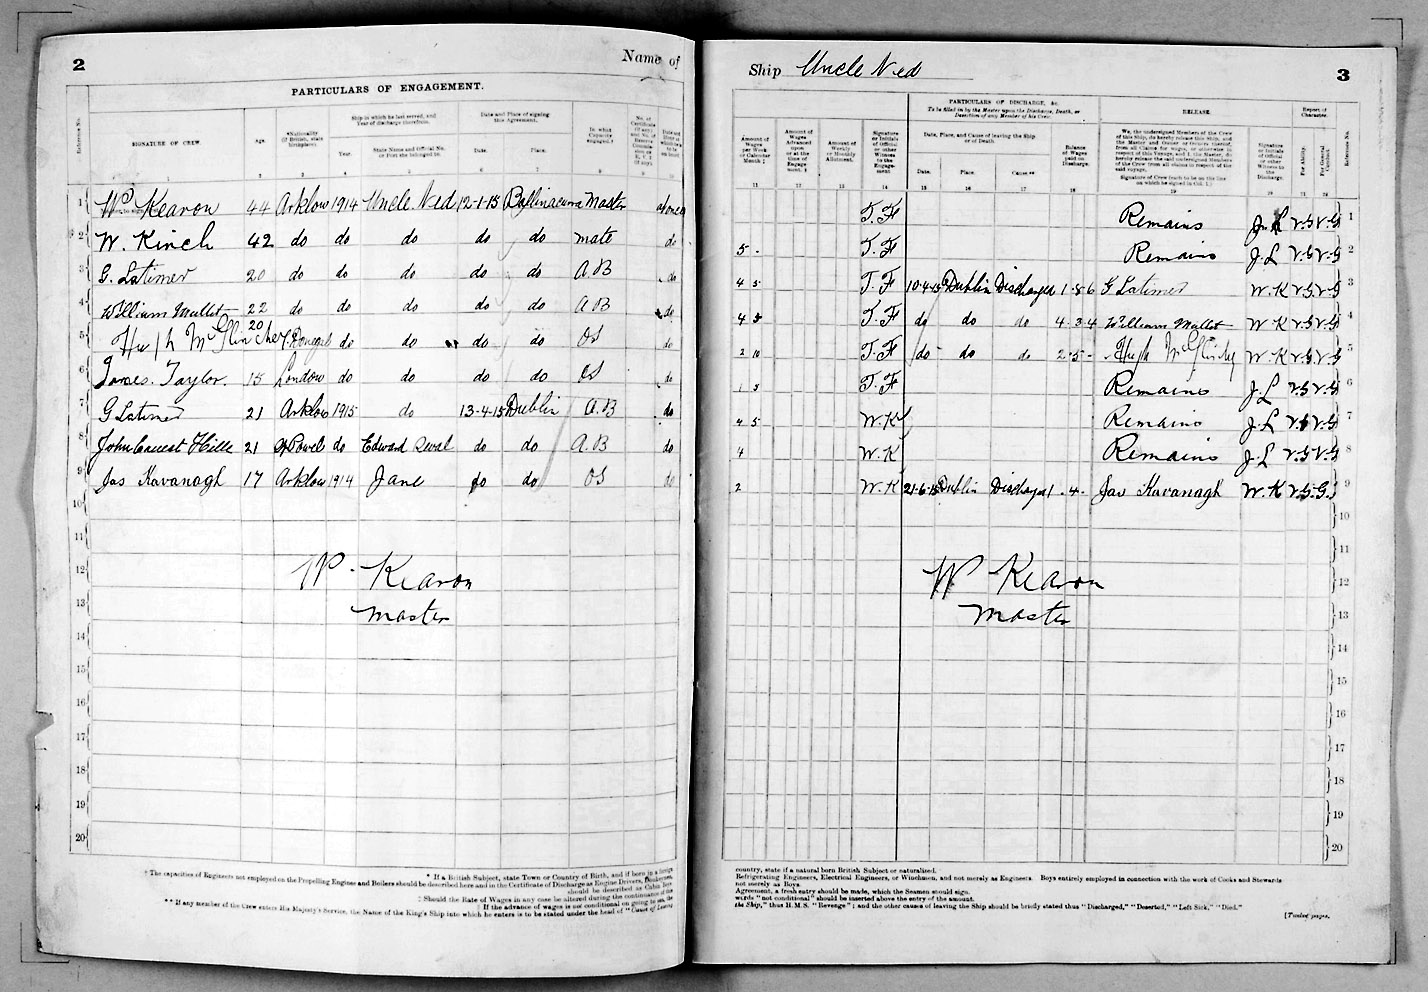 2
Name of
PARTICULARS OF ENGAGEMENT.
Reference No.
SIGNATURE OF CREW.
Age.
*Nationality (If British, state birthplace).
Ship in which he last served, and Year of discharge therefrom.
Year.
State Name and Official No. or Port she belonged to.
Date and Place of signing this Agreement.
Date.
Place.
In what Capacity engaged.†
1 W Kearon 44 Arklow 1914 Uncle Ned 12-1-15 Ballinacurra Master at once
2 W. Kinch 42 do do do do do mate do
3 G. Latimer 20 do do do do do A B do
4 William Mullet 22 do do do do do A B do
5 Hugh McGlinchey 20 Donegal do do do do OS do
6 James. Taylor. 15 London do do do do OS do
7 G Latimer 21 Arklow 1915 do 13-4-15 Dublin A.B do
8 John Hille 21 do Edward do do A.B do
9 Jas Kavanagh 17 Arklow 1914 Jane do do OS do
10
11
12 W. Kearon
13 Master
14
15
16
17
18
19
20
† The capacities of Engineers not employed on the Propelling Engine and Boilers should be described here and in the Certificate of Discharge as Engine Drivers,
* If a British Subject, state Town or Country of Birth, and if born in a foreign
should be described as Cabin Boys
‡ Should the Rate of Wages in any case be altered during the continuance of the
|| If the advance of wages is not conditional on going to sea, the
** If any member of the Crew enters His Majesty's Service, the Name of the King's Ship into which he enters is to be stated under the head of "Cause of Leaving
Ship Uncle Ned
3
PARTICULARS OF DISCHARGE, &c.
To be filled in by the Master upon the Discharge, Death, or Desertion of any Member of his Crew.
RELEASE.
Report of Character.
Amount of Wages per Week or Calendar Month
Amount of Wages Advanced upon or at the time of Engagement.
Amount of Weekly or Monthly Allotment.
Signature or Initials of Official or other Witness to the Engagement
Date, Place, and Cause of leaving the Ship or of Death.
Date.
Place.
Cause**
Balance of Wages paid on Discharge.
We, the undersigned Members of the Crew of this Ship, do hereby release this Ship, and the Master and Owner or Owners thereof, from all Claims for wages, or otherwise in respect of this Voyage, and I, the Master, do hereby release the said undersigned Members of the Crew from all claims in respect of the said voyage.
Signature of Crew (each to be on the line on which he signed in Col. 1.)
Signature or Initials of Official or other Witness to the Discharge.
For Ability.
For General Conduct.
Reference No.
11 12 13 14 15 16 17 18 19 20 21 22
T. F Remains J. L V.G V.G 1
5 - T. F Remains J. L V.G V.G 2
4 5 T. F 10-4-15 Dublin Discharged 1-8-6 G Latimer W. K V.G. V.G 3
4 5 T. F do do do 4-3-4 William Mullet W K V.G V.G 4
2 10 T. F do do do 2-5- Hugh McGlinchey W. K V.G V.G 5
1 5 T. F Remains J. L V.G V.G 6
4 5 W. K Remains J. L V.G V.G 7
4 W. K Remains J. L V.G V.G 8
2 W. K 21-6-15 Dublin Discharged 1-4- Jas Kavanagh W. K V.G. G. 9
10
11
W Kearon 12
Master 13
14
15
16
17
18
19
20
country, state if a natural born British Subject or naturalized.
Refrigerating Engineers, Electrical Engineers, or Winchmen, and not merely as Engineers. Boys entirely employed in connection with the work of Cooks and Stewards
not merely as Boys.
Agreement, a fresh entry should be made, which the Seamen should sign.
words "not conditional" should be inserted above the entry of the amount.
the Ship," thus H.M.S. "Revenge"; and the other causes of leaving the Ship should be briefly stated thus "Discharged," "Deserted," "Left Sick," "Died."
[Twelve pages.